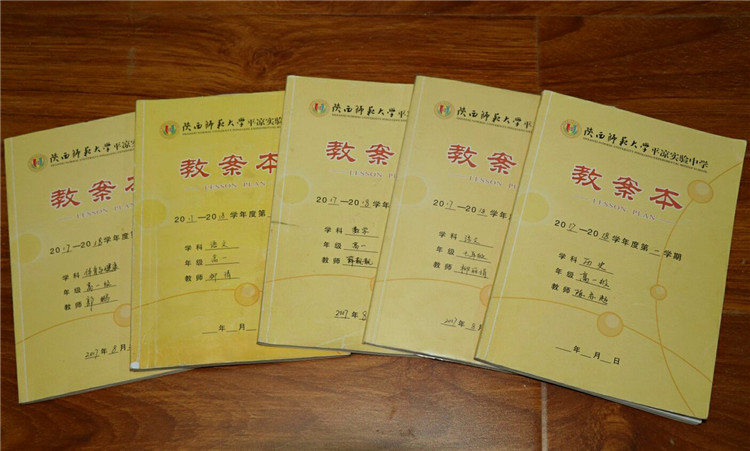 陕西师范大学平凉实验
教案
LESSON PLAN
2017—2018学年度
学科 体育与健康
年级 高一级
教师 郭鹏
2017年8月
陕西师范大学平凉实验
教案本
LESSON PLAN
20 —20 学年度第
学科 语文
年级 高一
教师
年 月
陕西师范大学平
教案
LESSON PLAN
2017—2018学年
学科 数学
年级 高一
教师
2017年
陕西师范大学平凉
教案
LESSON PLAN
2017—2018学年
学科 语文
年级 七年级
教师
2017年8月
陕西师范大学平凉实验中学
教案本
LESSON PLAN
2017—2018学年度第二学期
学科 历史
年级 高一级
教师
年 月 日